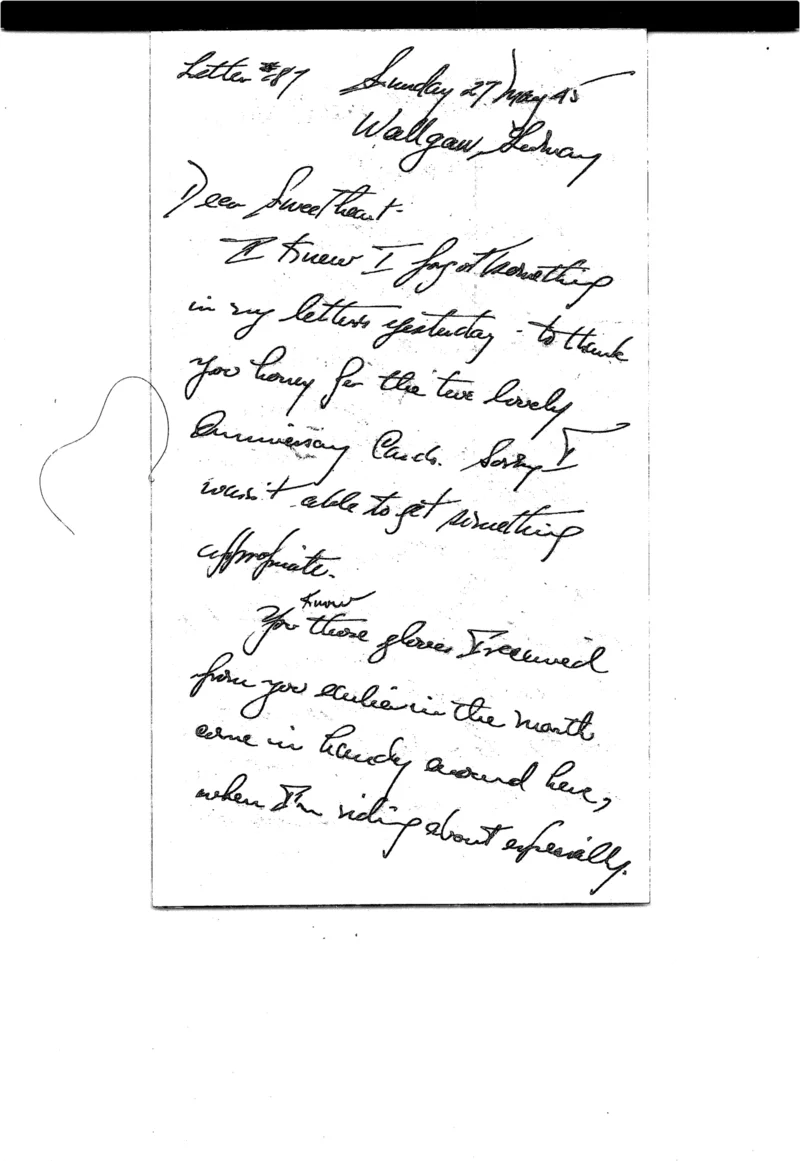 Letter #87 Sunday 27 May 45
Wallgau, Germany
Dear Sweetheart-
I knew I forgot something
in my letters yesterday - to thank
you honey for the two lovely
Anniversary Cards. Sorry I
wasn't able to get something
appropiate.
know
You those gloves I received
from you earlier in the month
come in handy around here,
when I'm riding about especially.